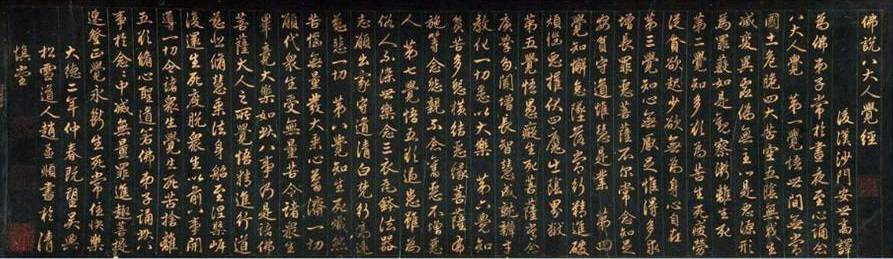 佛說八大人覺經
後漢沙門安世高譯
為佛弟子常於晝夜至心誦念
八大人覺 第一覺悟世間無常
國土危脆四大苦空五陰無我生
滅變異虛偽無主心是惡源形
為罪藪如是觀察漸離生死
第二覺知多欲為苦生死疲勞
從貪欲起少欲無為身心自在
第三覺知心無厭足惟得多求
增長罪惡菩薩不爾常念知足
安貧守道惟慧是業 第四
覺知懈怠墜落常行精進破
煩惱惡摧伏四魔出陰界獄
第五覺悟愚癡生死菩薩常念
廣學多聞增長智慧成就辯才
教化一切悉以大樂 第六覺知
貧苦多怨橫結惡緣菩薩布
施等念怨親不念舊惡不憎惡
人 第七覺悟五欲過患雖為
俗人不染世樂念三衣瓦鉢法器
志願出家守道清白梵行高遠
慈悲一切 第八覺知生死熾然
苦惱無量發大乘心普濟一切
願代眾生受無量苦令諸眾生
畢竟大樂如此八事乃是諸佛
菩薩大人之所覺悟精進行道
慈悲脩慧乘法身船至涅槃岸
復還生死度脫眾生以前八事開
導一切令諸眾生覺生死苦捨離
五欲脩心聖道若佛弟子誦此八
事於念念中滅無量罪進趣菩提
速登正覺永斷生死常住快樂
大德二年仲春既望吳興
松雪道人趙孟頫書於清
慎堂